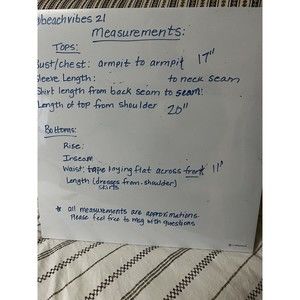 beachvibes 21
Measurements:
Tops:
Bust/chest: armpit to armpit 17"
Sleeve Length: to neck seam
Shirt length from back seam to seam:
Length of top from shoulder 20"
Bottoms:
Rise:
Inseam
Waist: tape laying flat across front 11"
Length (dresses from shoulder)
skirts
* all measurements are approximations
Please feel free to msg with questions